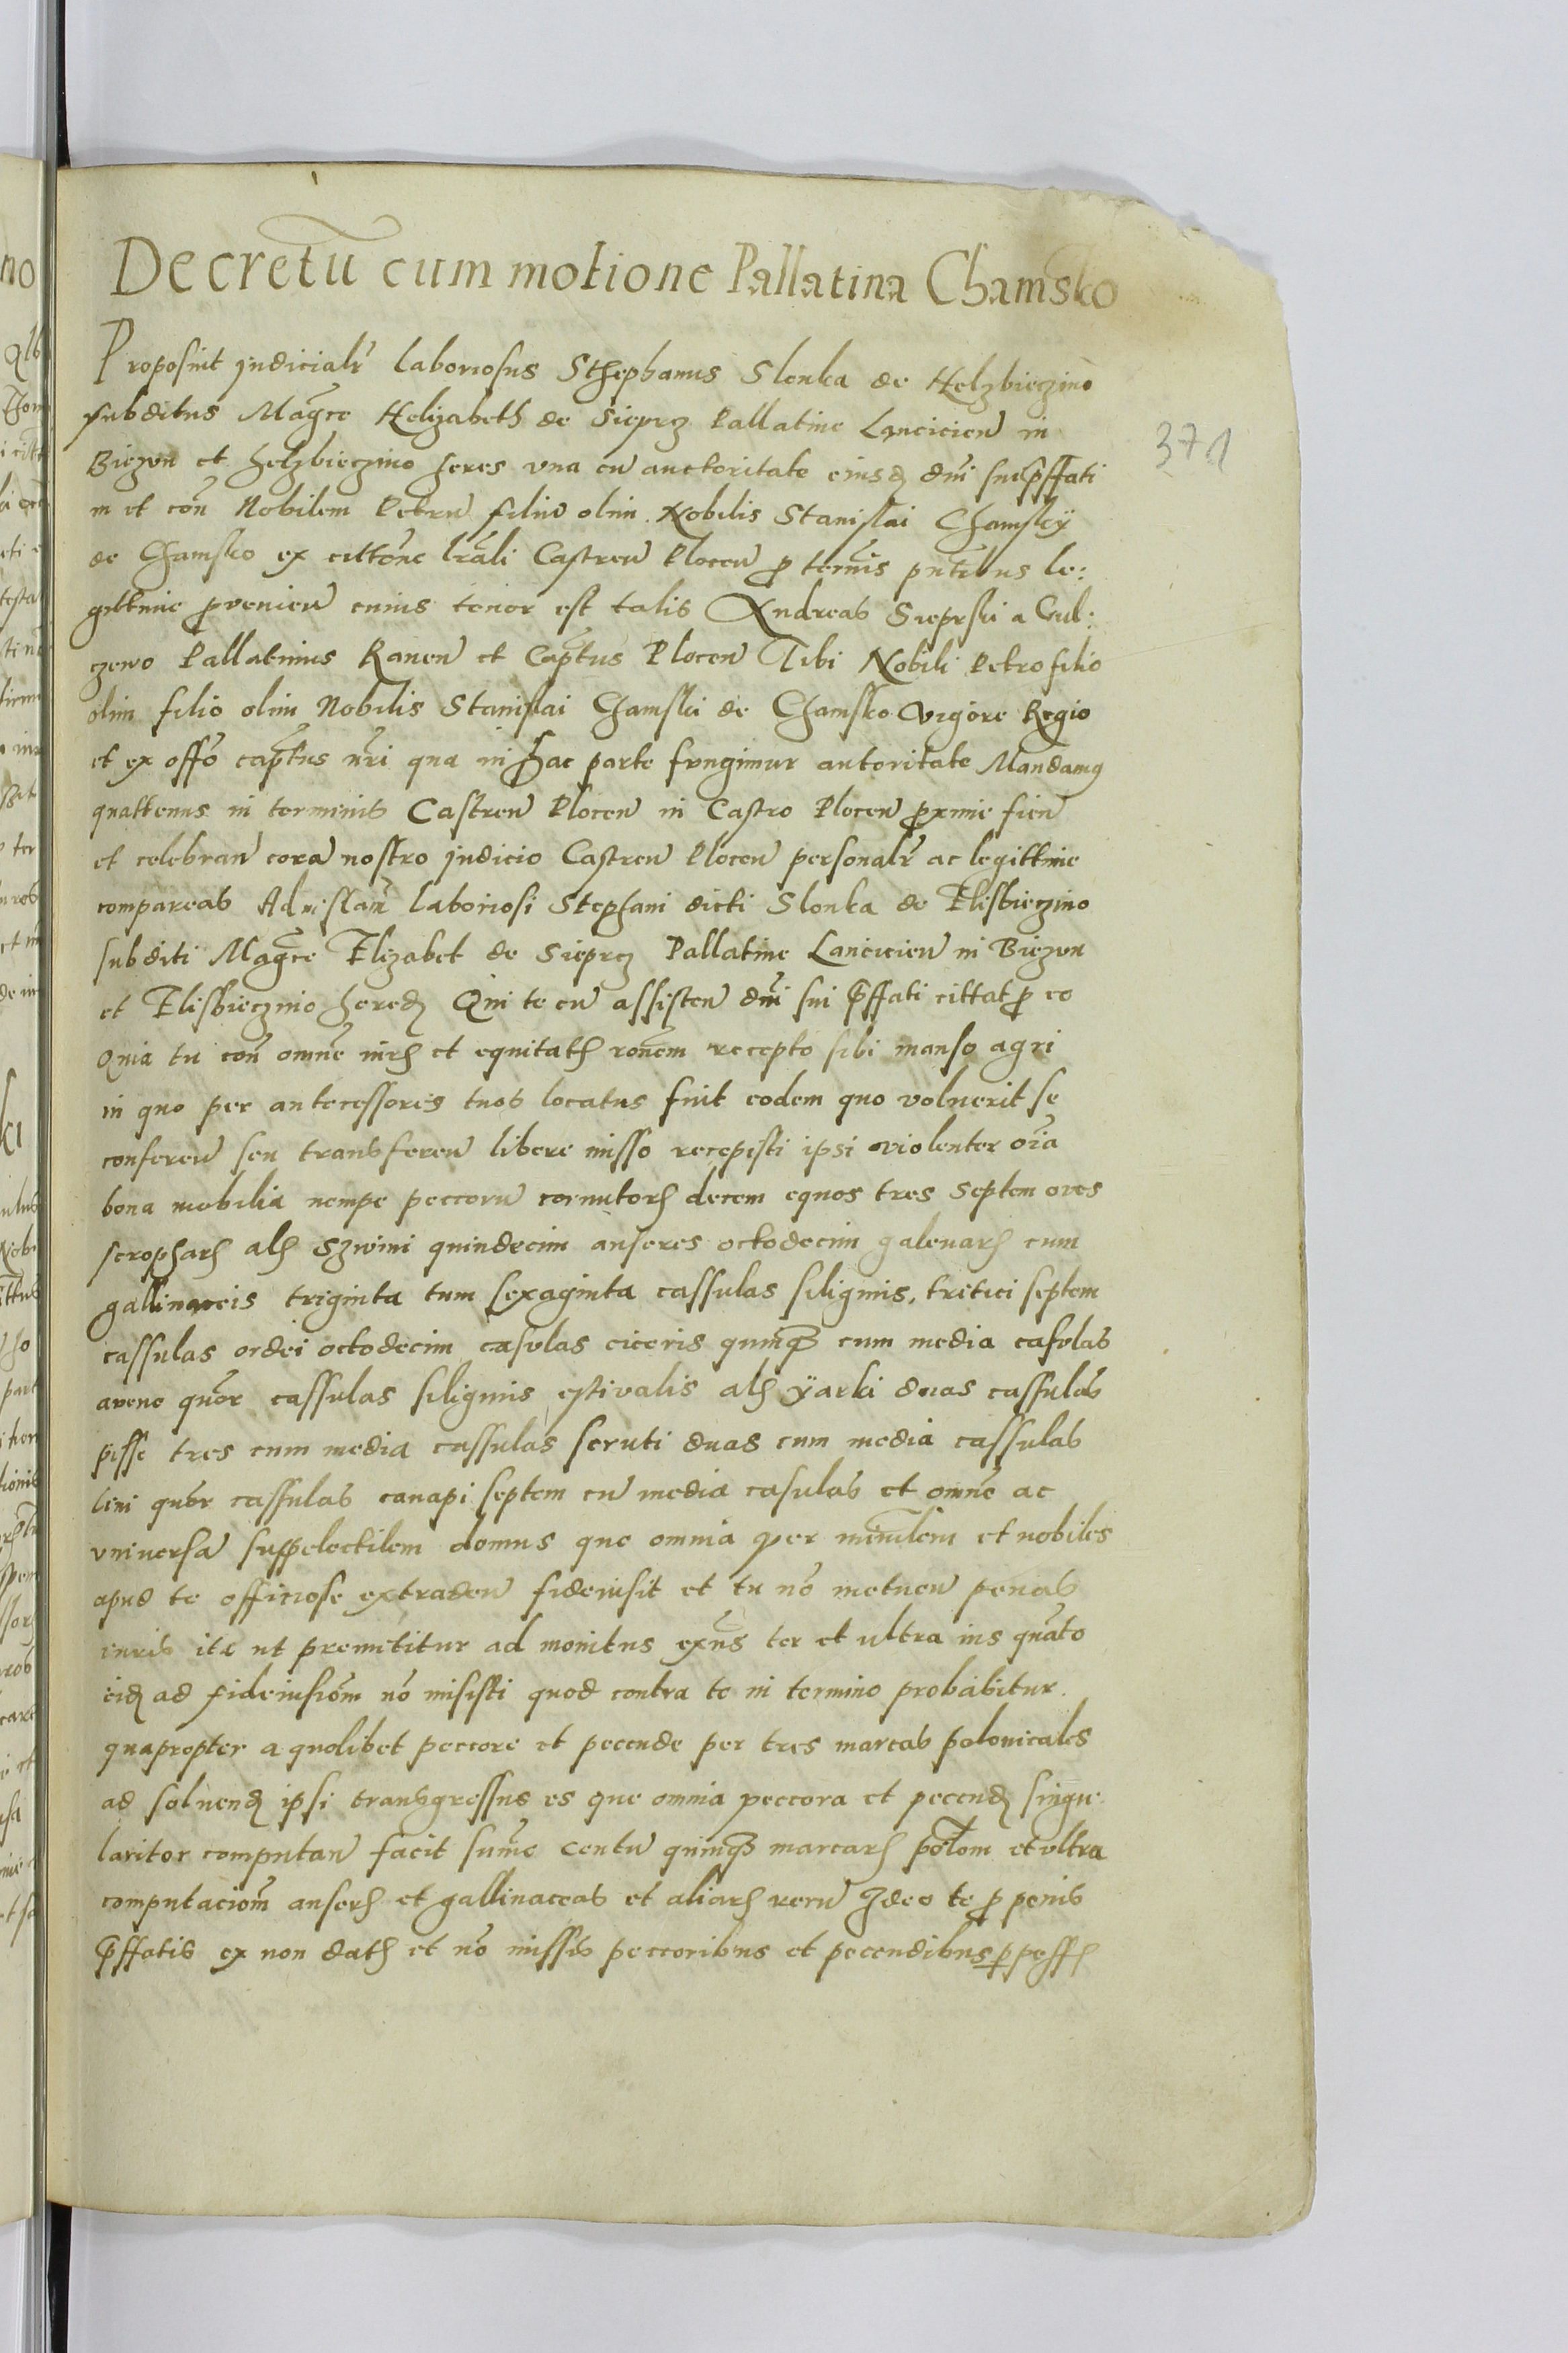 Decretu cum motione Pallatina Chamsko
Proposuit judicialr laboriosus Sthephanus Slonka de Helzbieczino
subditus Magce Helizabeth de Sieprcz Pallatine Lancicien in
Biezvn et helzbieczino heres vna cu auctoritate eiusd dni sui pffati
in et con Nobilem Petru filiu olim Nobilis Stanislai Chamskÿ
de Chamsko ex cittone lrali Castren Plocen p termis pntibus le:
gittime provenien cuius tenor est talis Andreas Sieprski a Gul:
czewo Pallatinus Raven et Captus Plocen Tibi Nobili Petro filio
olim filio olim Nobilis Stanislai Chamski de Chamsko Vigore Regio
et ex offo captus nri qua in hac parte fvngimur autoritate Mandamq
quattenus in terminis Castren Plocen in Castro Plocen proxime fien
et celebran cora nostro judicio Castren Plocen personalr ac legittime
compareas Ad instan laboriosi Stephani dicti Slonka de Elisbieczino
subditi Magce Elizabet de Sieprcz Pallatine Lancicien in Biezvn
et Elisbieczino hered Qui te cu assisten dni sui pffati cittat p eo
Quia tu con omne iuris et equitatis ronem recepto sibi manso agri
in quo per antecessores tuos locatus fuit eodem quo voluerit se
conferen seu transferen libere misso recepisti ipsi violenter oia
bona mobilia nempe peccoru cornutorum decem equos tres septem oves
scropharum alias Szwini quindecim anseres octodecim galenarum cum
gallinaceis triginta tum sexaginta cassulas siliginis, tritici septem
cassulas ordei octodecim casulas ciceris quinq cum media casvlas
avene quor cassulas siliginis estivalis alias ÿarki duas cassulas
pisse tres cum media cassulas seruti duas cum media cassulas
lini quor cassulas canapi septem cu media casulas et omne ac
vniversa suppelectilem domus que omnia per mimlem et nobiles
apud te officiose extraden fideiusit et tu no metuen penas
iuris ita ut premititur ad monitus exns ter et ultra ius quato
eid ad fideiusiom no misisti quod contra te in termino probabitur.
quapropter a quolibet peccore et pecude per tres marcas polonicales
ad soluend ipsi transgressus es que omnia peccora et pecud singu
lariter computan facit sume centu quinq marcarum polom et vltra
computaciom anserum et gallinaceas et aliarum reru Ideo te p penis
pffatis ex non datis et no missis peccoribus et pecudibus
371